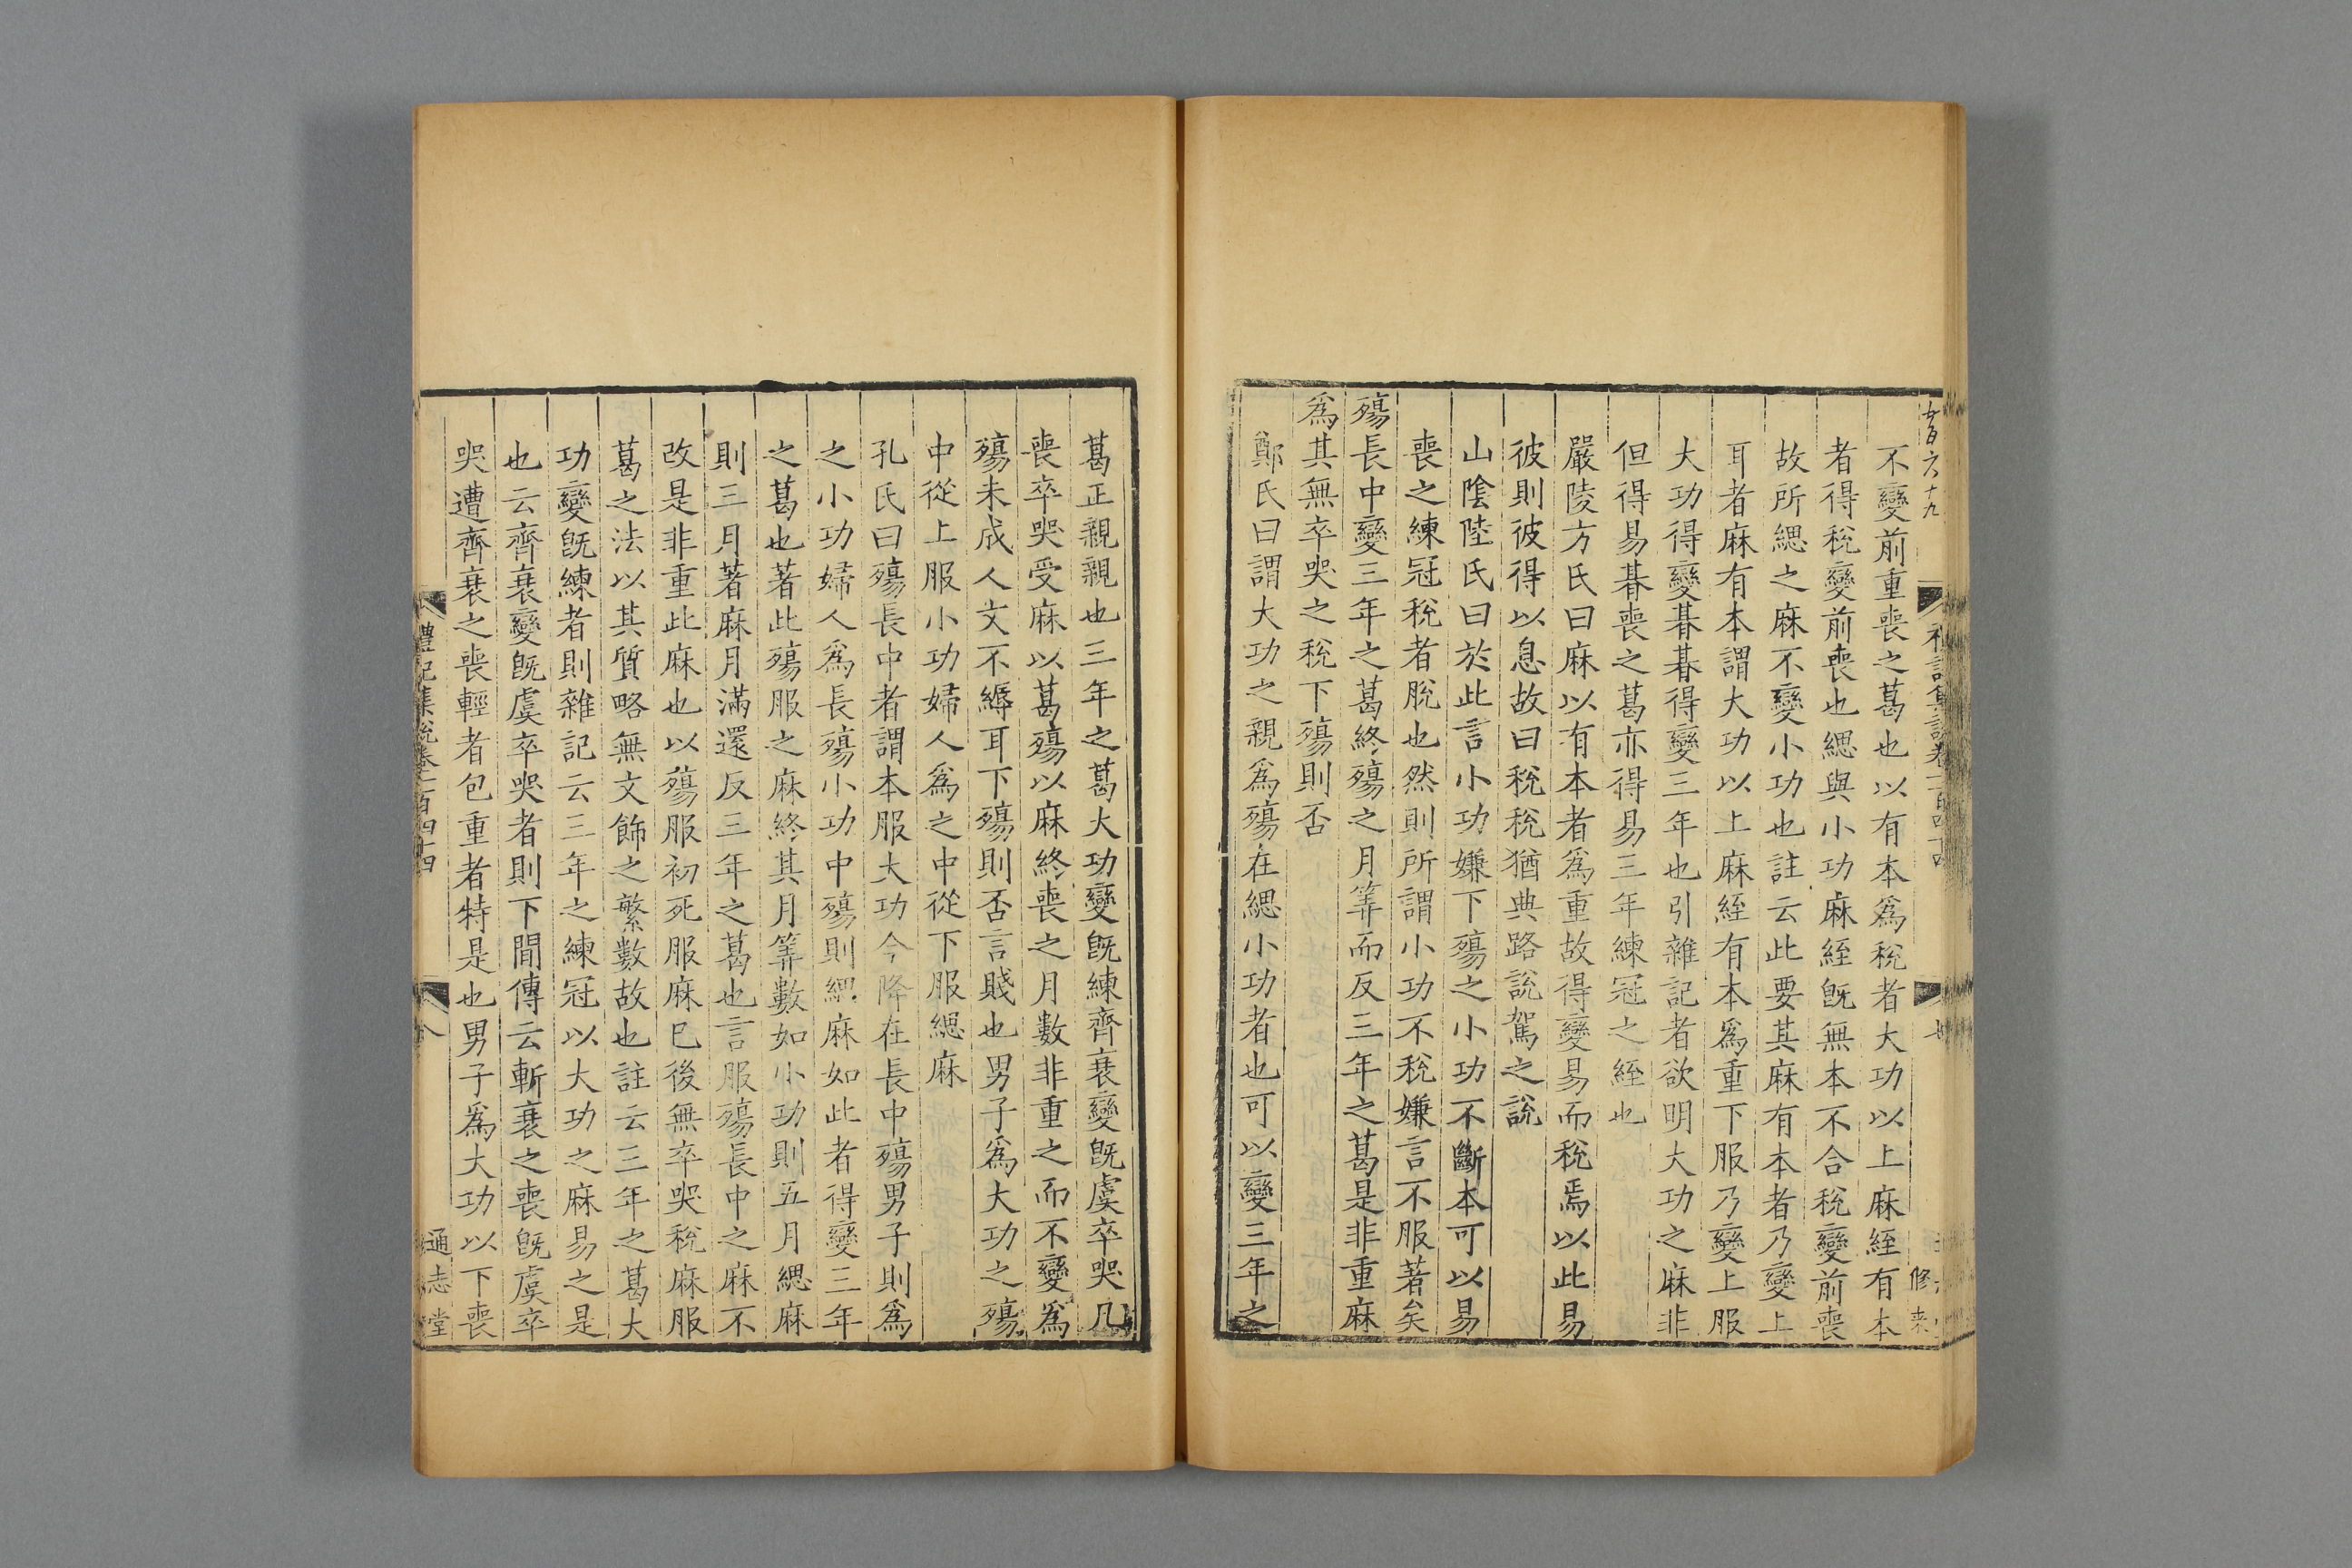 不變前重喪之葛也以有本爲稅者大功以上麻絰有本
者得稅變前喪也緦與小功麻絰旣無本不合稅變前喪
故所緦之麻不變小功也註云此要其麻有本者乃變上
耳者麻有本謂大功以上麻絰有本爲重下服乃變上服
大功得變朞朞得變三年也引雜記者欲明大功之麻非
但得易朞喪之葛亦得易三年練冠之絰也
嚴陵方氏曰麻以有本者爲重故得變易而稅焉以此易
彼則彼得以息故曰稅稅猶典路說駕之說
山陰陸氏曰於此言小功嫌下殤之小功不斷本可以易
喪之練冠稅者脫也然則所謂小功不稅嫌言不服著矣
殤長中變三年之葛終殤之月筭而反三年之葛是非重麻
爲其無卒哭之稅下殤則否
鄭氏曰謂大功之親爲殤在緦小功者也可以變三年之
葛正親親也三年之葛大功變旣練齊衰變旣虞卒哭凡
喪卒哭受麻以葛殤以麻終喪之月數非重之而不變爲
殤未成人文不縟耳下殤則否言賤也男子爲大功之殤
中從上服小功婦人爲之中從下服緦麻
孔氏曰殤長中者謂本服大功今降在長中殤男子則爲
之小功婦人爲長殤小功中殤則緦麻如此者得變三年
之葛也著此殤服之麻終其月筭數如小功則五月緦麻
則三月著麻月滿還反三年之葛也言服殤長中之麻不
改是非重此麻也以殤服初死服麻已後無卒哭稅麻服
葛之法以其質略無文飾之繁數故也註云三年之葛大
功變旣練者則雜記云三年之練冠以大功之麻易之是
也云齊衰變旣虞卒哭者則下間傳云斬衰之喪旣虞卒
哭遭齊衰之喪輕者包重者特是也男子爲大功以下喪
禮記集說卷一百四十四
八
通志堂